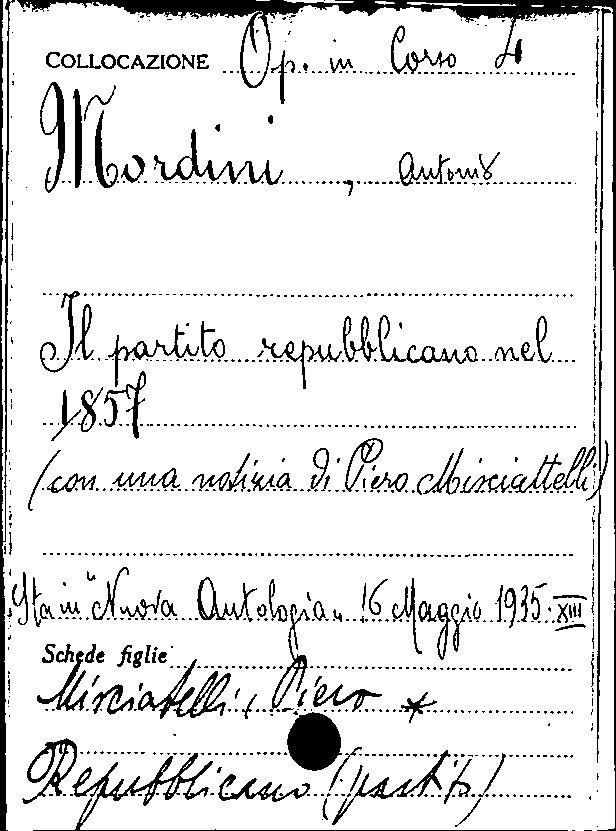 COLLOCAZIONE Op. in Corso 4
Mordini, Antonio
Il partito repubblicano nel
1857
(con una notizia di Piero Misciattelli)
Sta in "Nuova Antologia" 16 Maggio 1935. XIII
Schede figlie
Misciatelli, Piero *
Repubblicano (partito)